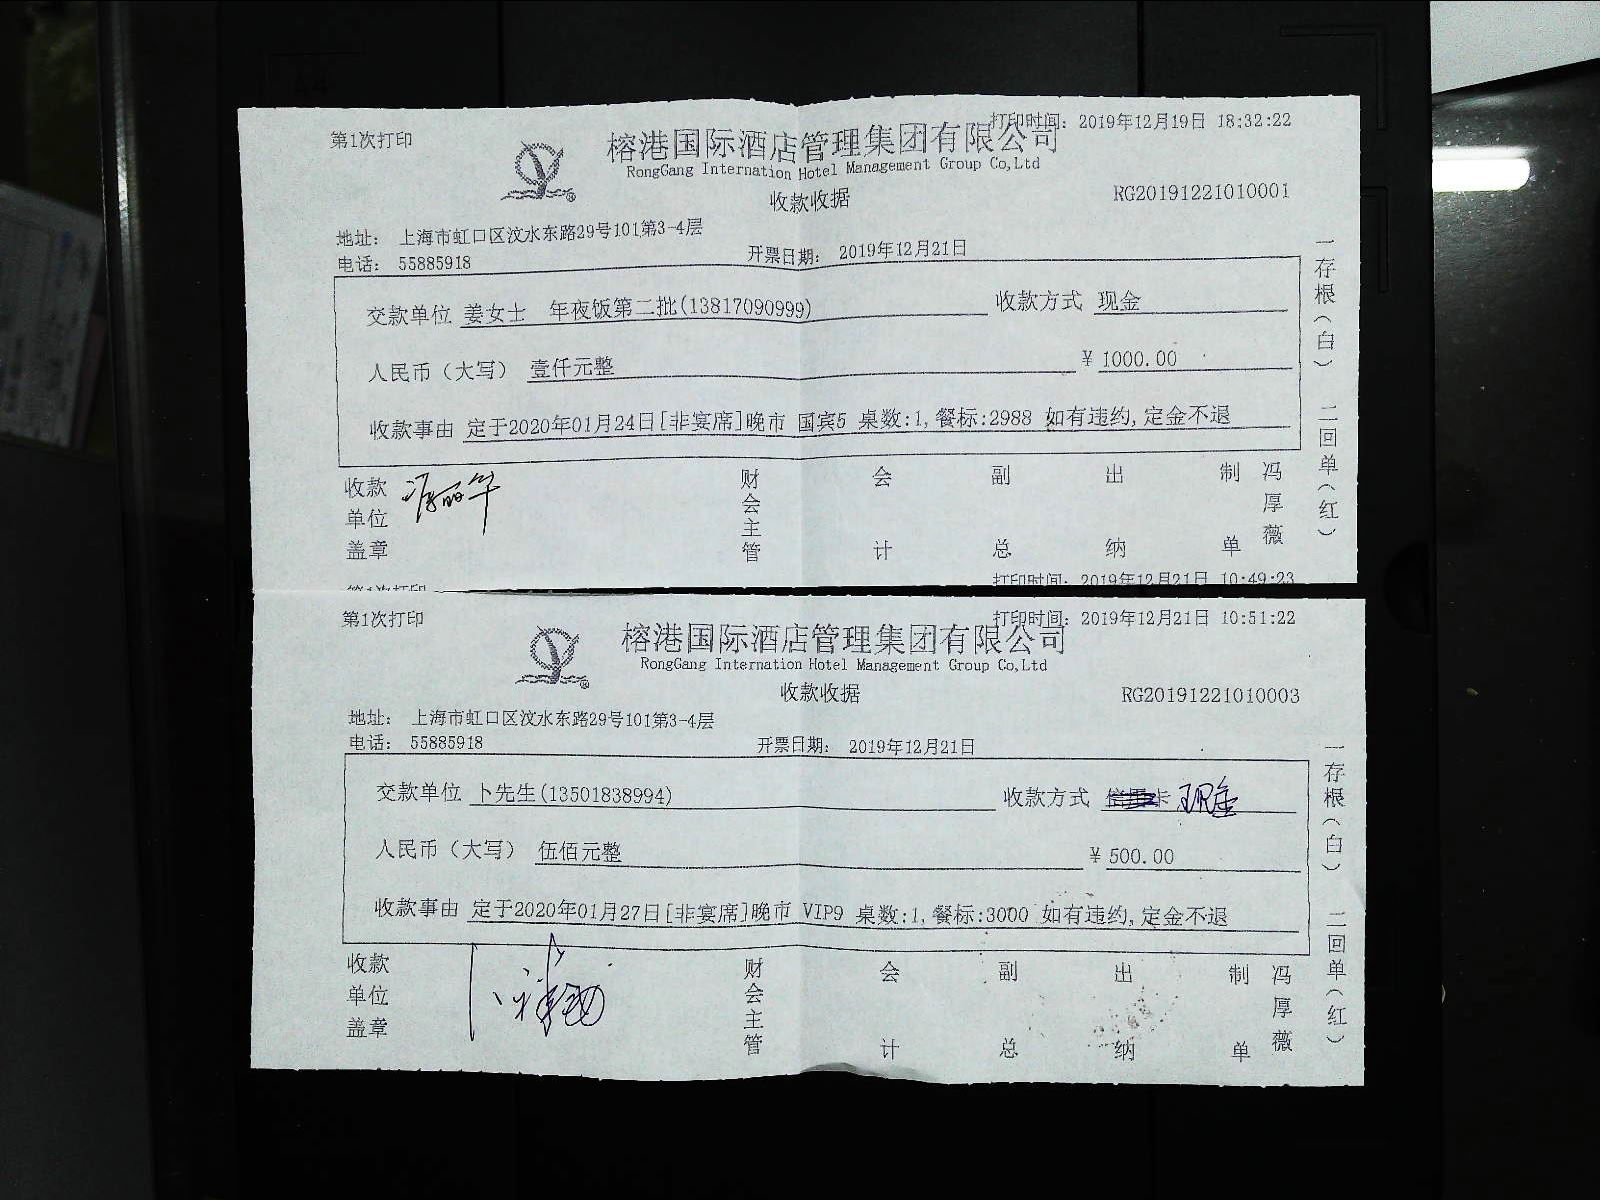 第1次打印
打印时间: 2019年12月19日 18:32:22
榕港国际酒店管理集团有限公司
RongGang Internation Hotel Management Group Co,Ltd
收款收据
RG20191221010001
地址: 上海市虹口区汶水东路29号101第3-4层
电话: 55885918
开票日期: 2019年12月21日
交款单位 姜女士 年夜饭第二批(13817090999) 收款方式 现金
人民币(大写) 壹仟元整 ¥ 1000.00
收款事由 定于2020年01月24日[非宴席]晚市 国宾5 桌数:1,餐标:2988 如有违约,定金不退
收款单位盖章 财会主管 会计 副总 出纳 制单 冯厚薇
一存根(白) 二回单(红)
第1次打印
打印时间: 2019年12月21日 10:49:23
第1次打印
打印时间: 2019年12月21日 10:51:22
榕港国际酒店管理集团有限公司
RongGang Internation Hotel Management Group Co,Ltd
收款收据
RG20191221010003
地址: 上海市虹口区汶水东路29号101第3-4层
电话: 55885918
开票日期: 2019年12月21日
交款单位 卜先生(13501838994) 收款方式 信用卡 现金
人民币(大写) 伍佰元整 ¥ 500.00
收款事由 定于2020年01月27日[非宴席]晚市 VIP9 桌数:1,餐标:3000 如有违约,定金不退
收款单位盖章 财会主管 会计 副总 出纳 制单 冯厚薇
一存根(白) 二回单(红)